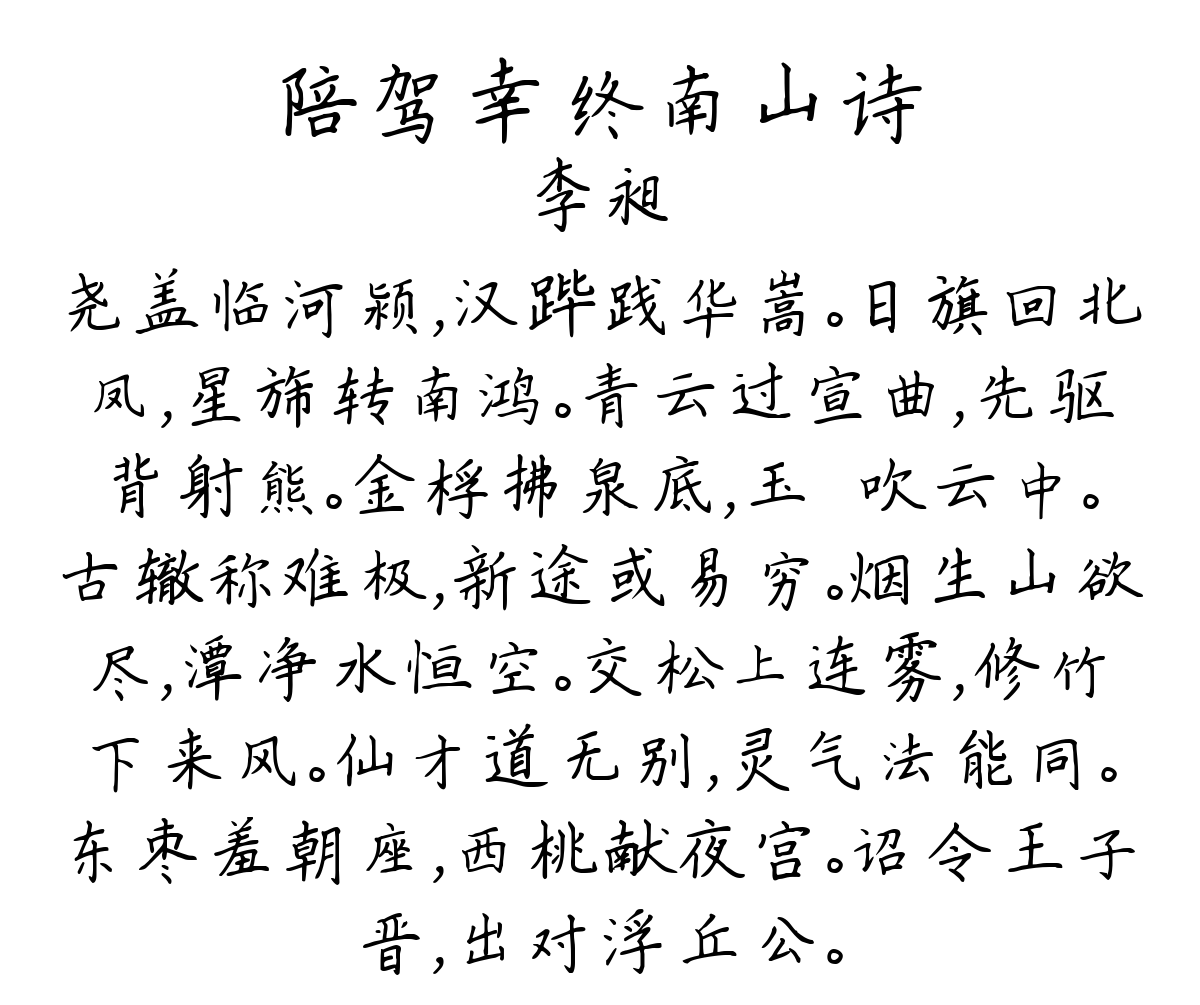 陪驾幸终南山诗
李昶
尧盖临河颍,汉跸践华嵩。日旗回北
凤,星旆转南鸿。青云过宣曲,先驱
背射熊。金桴拂泉底,玉 吹云中。
古辙称难极,新途或易穷。烟生山欲
尽,潭净水恒空。交松上连雾,修竹
下来风。仙才道无别,灵气法能同。
东枣羞朝座,西桃献夜宫。诏令王子
晋,出对浮丘公。